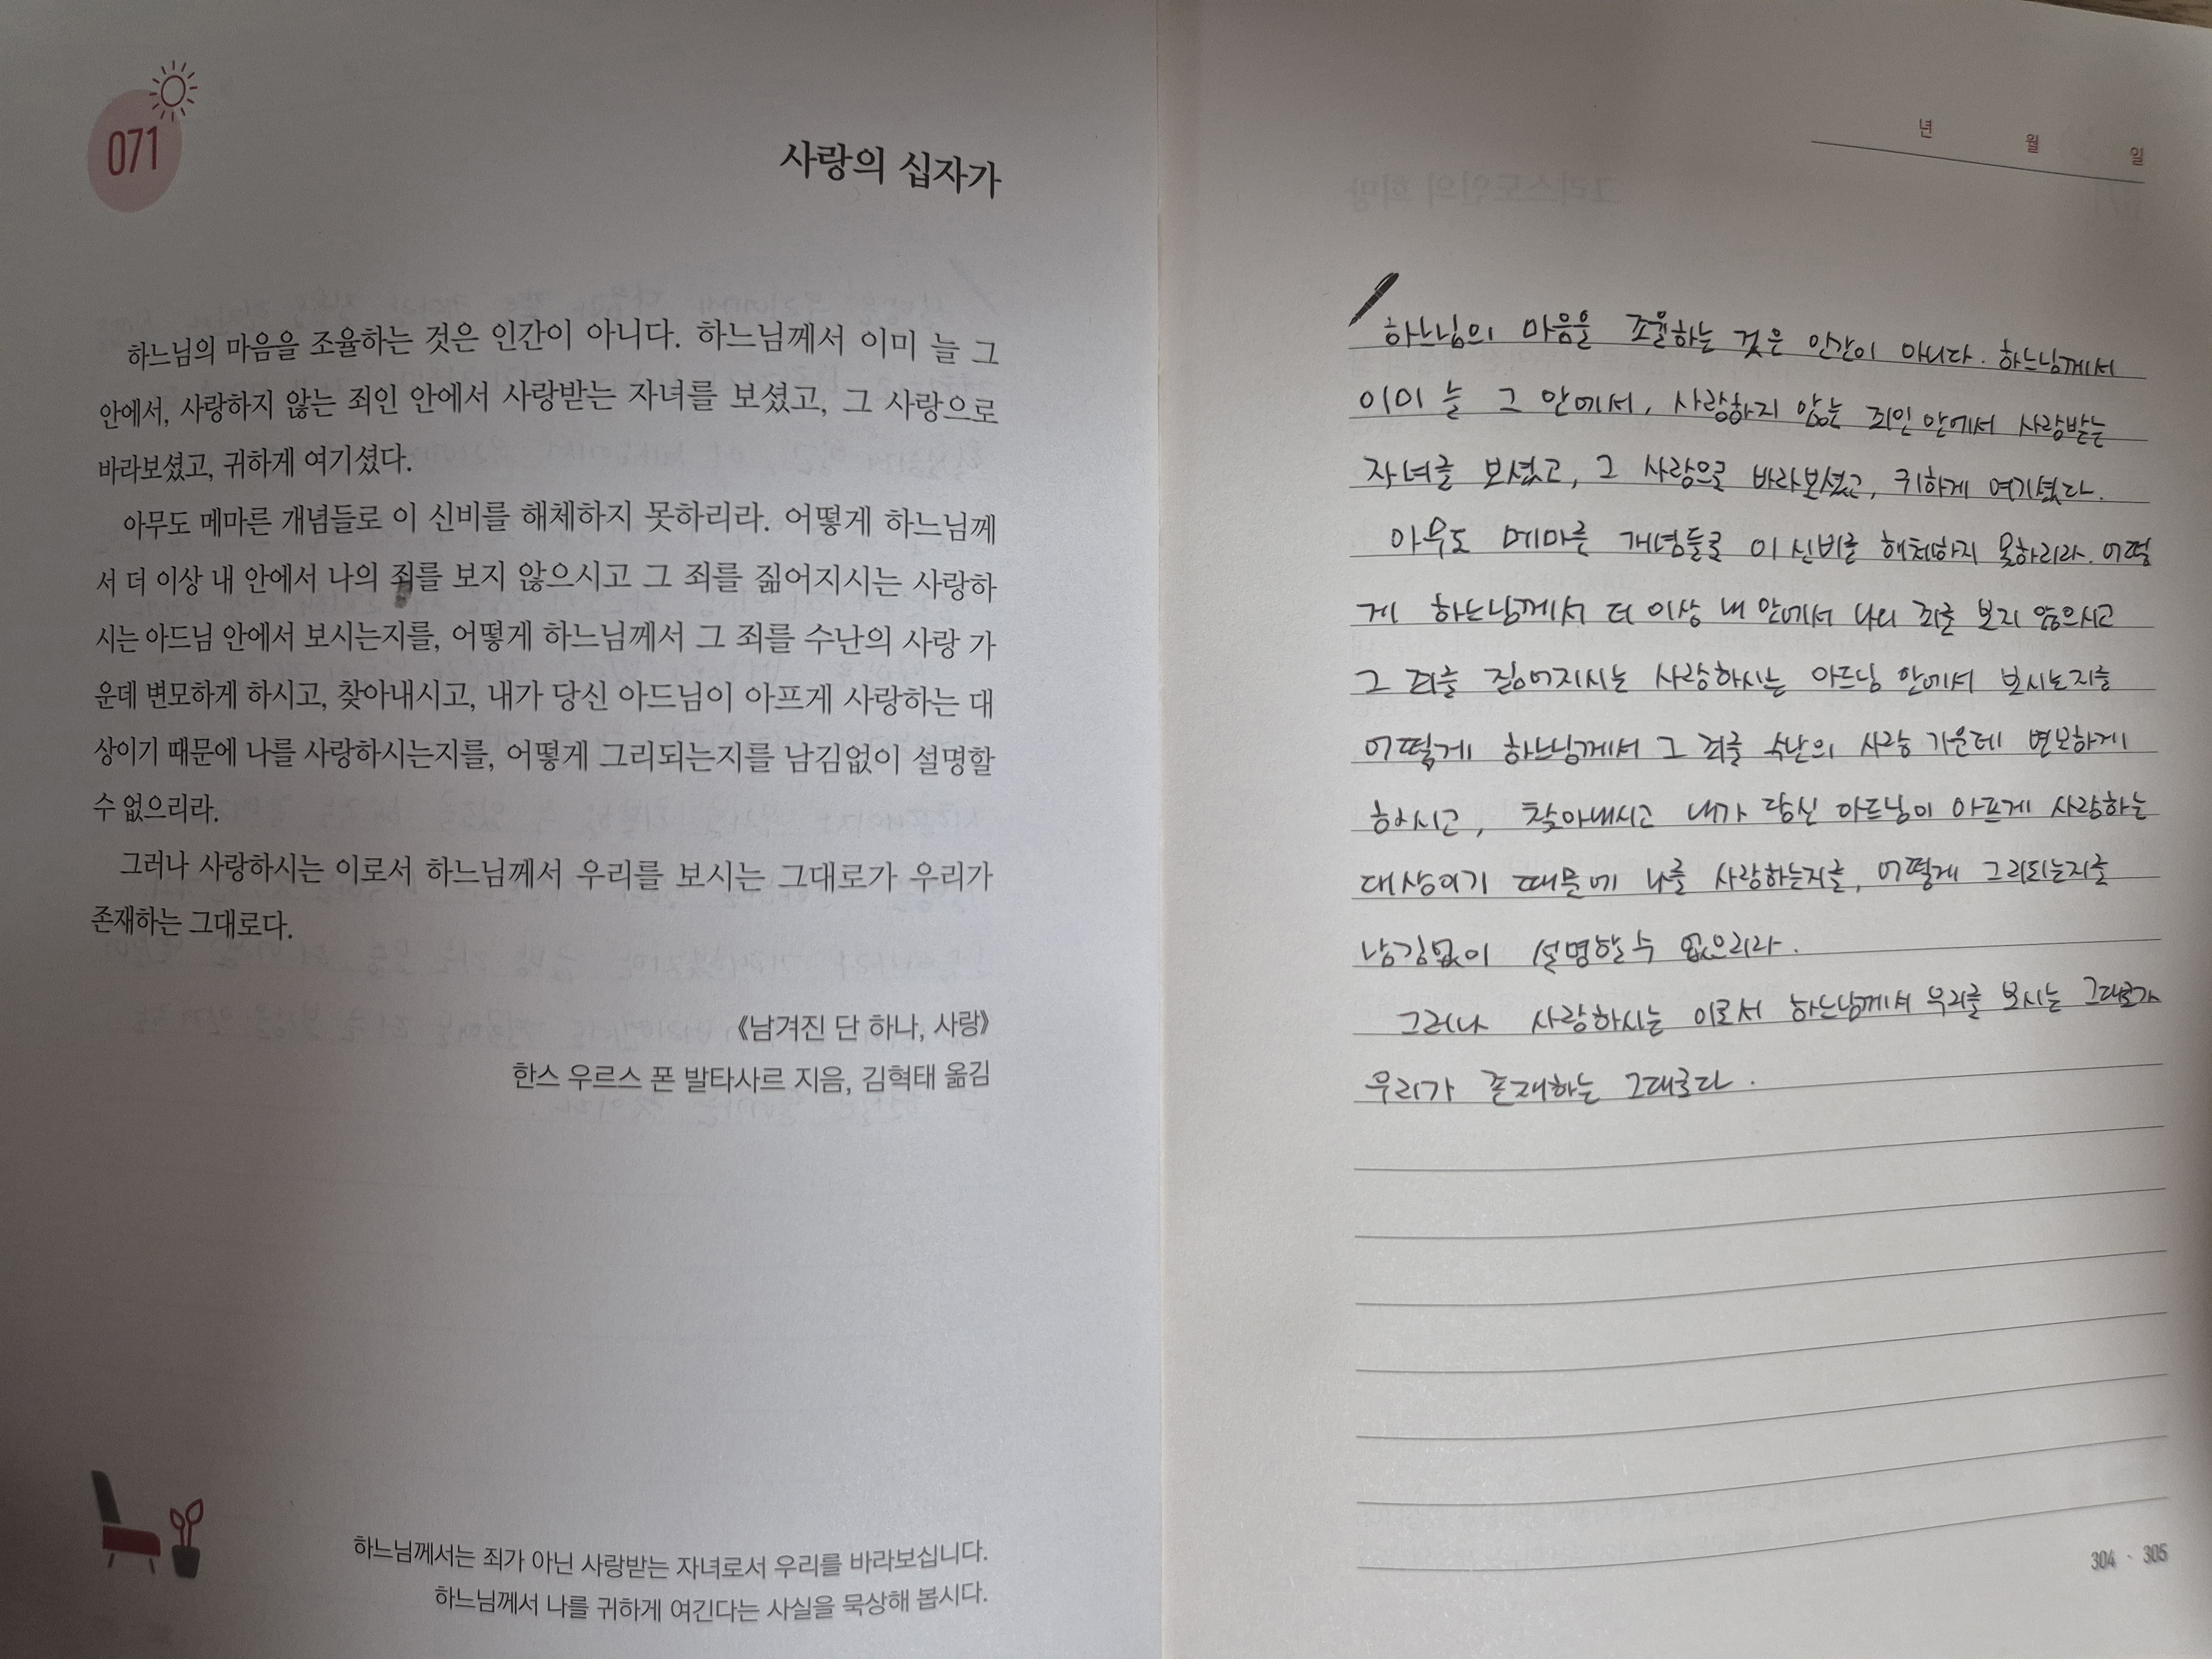 071
사랑의 십자가
하느님의 마음을 조율하는 것은 인간이 아니다. 하느님께서 이미 늘 그
안에서, 사랑하지 않는 죄인 안에서 사랑받는 자녀를 보셨고, 그 사랑으로
바라보셨고, 귀하게 여기셨다.
아무도 메마른 개념들로 이 신비를 해체하지 못하리라. 어떻게 하느님께
서 더 이상 내 안에서 나의 죄를 보지 않으시고 그 죄를 짊어지시는 사랑하
시는 아드님 안에서 보시는지를, 어떻게 하느님께서 그 죄를 수난의 사랑 가
운데 변모하게 하시고, 찾아내시고, 내가 당신 아드님이 아프게 사랑하는 대
상이기 때문에 나를 사랑하시는지를, 어떻게 그리되는지를 남김없이 설명할
수 없으리라.
그러나 사랑하시는 이로서 하느님께서 우리를 보시는 그대로가 우리가
존재하는 그대로다.
《남겨진 단 하나, 사랑》
한스 우르스 폰 발타사르 지음, 김혁태 옮김
하느님께서는 죄가 아닌 사랑받는 자녀로서 우리를 바라보십니다.
하느님께서 나를 귀하게 여긴다는 사실을 묵상해 봅시다.
년 월 일
하느님의 마음을 조율하는 것은 인간이 아니다. 하느님께서
이미 늘 그 안에서, 사랑하지 않는 죄인 안에서 사랑받는
자녀를 보셨고, 그 사랑으로 바라보셨고, 귀하게 여기셨다.
아무도 메마른 개념들로 이 신비를 해체하지 못하리라. 어떻
게 하느님께서 더 이상 내 안에서 나의 죄를 보지 않으시고
그 죄를 짊어지시는 사랑하시는 아드님 안에서 보시는지를
어떻게 하느님께서 그 죄를 수난의 사랑 가운데 변모하게
하시고, 찾아내시고 내가 당신 아드님이 아프게 사랑하는
대상이기 때문에 나를 사랑하는지를, 어떻게 그리되는지를
남김없이 설명할 수 없으리라.
그러나 사랑하시는 이로서 하느님께서 우리를 보시는 그대로가
우리가 존재하는 그대로다.
304 · 305